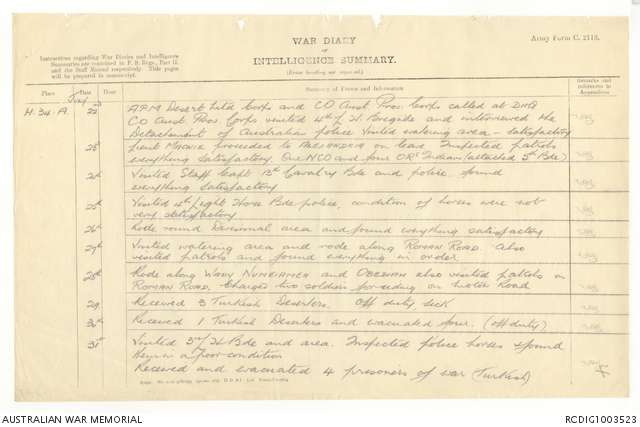 WAR DIARY
or
INTELLIGENCE SUMMARY.
(Erase heading not required).
Army Form C. 2118.
Instructions regarding War Diaries and Intelligence
Summaries are contained in F. S. Regs., Part II.
and the Staff Manual respectively. Title pages
will be prepared in manuscript.
Place Date Hour Summary of Events and Information Remarks and references to Appendices
H.34.A. 22nd APM Desert Mtd Corps and CO Aust Prov. Corps called at DHQ
CO Aust Prov. Corps visited 4th L. H. Brigade and interviewed the
Detachment of Australian police. Visited watering area - satisfactory
23rd Lieut proceeded to Alexandria on leave. Inspected patrols
everything satisfactory. One NCO and four ORs Indian (attached 5th Bde)
24th Visited Staff Capt 12th Cavalry Bde and police found
everything satisfactory
25th Visited 4th Light Horse Bde police, condition of horses were not
very satisfactory
26th Rode round Divisional area and found everything satisfactory
27th Visited watering area and rode along ROMAN ROAD. Also
visited patrols and found everything in order
28th Rode along WADY and also visited patrols on
ROMAN ROAD. Charged two soldiers for riding on Motor Road
29 Received 3 Turkish Deserters. Off duty sick
30th Received 1 Turkish Deserters and evacuated four. (off duty)
31st Visited 3rd L H Bde and area. Inspected police horses & found
them in a poor condition
Received and evacuated 4 prisoners of war (Turkish)
AUSTRALIAN WAR MEMORIAL
RCDIG1003523